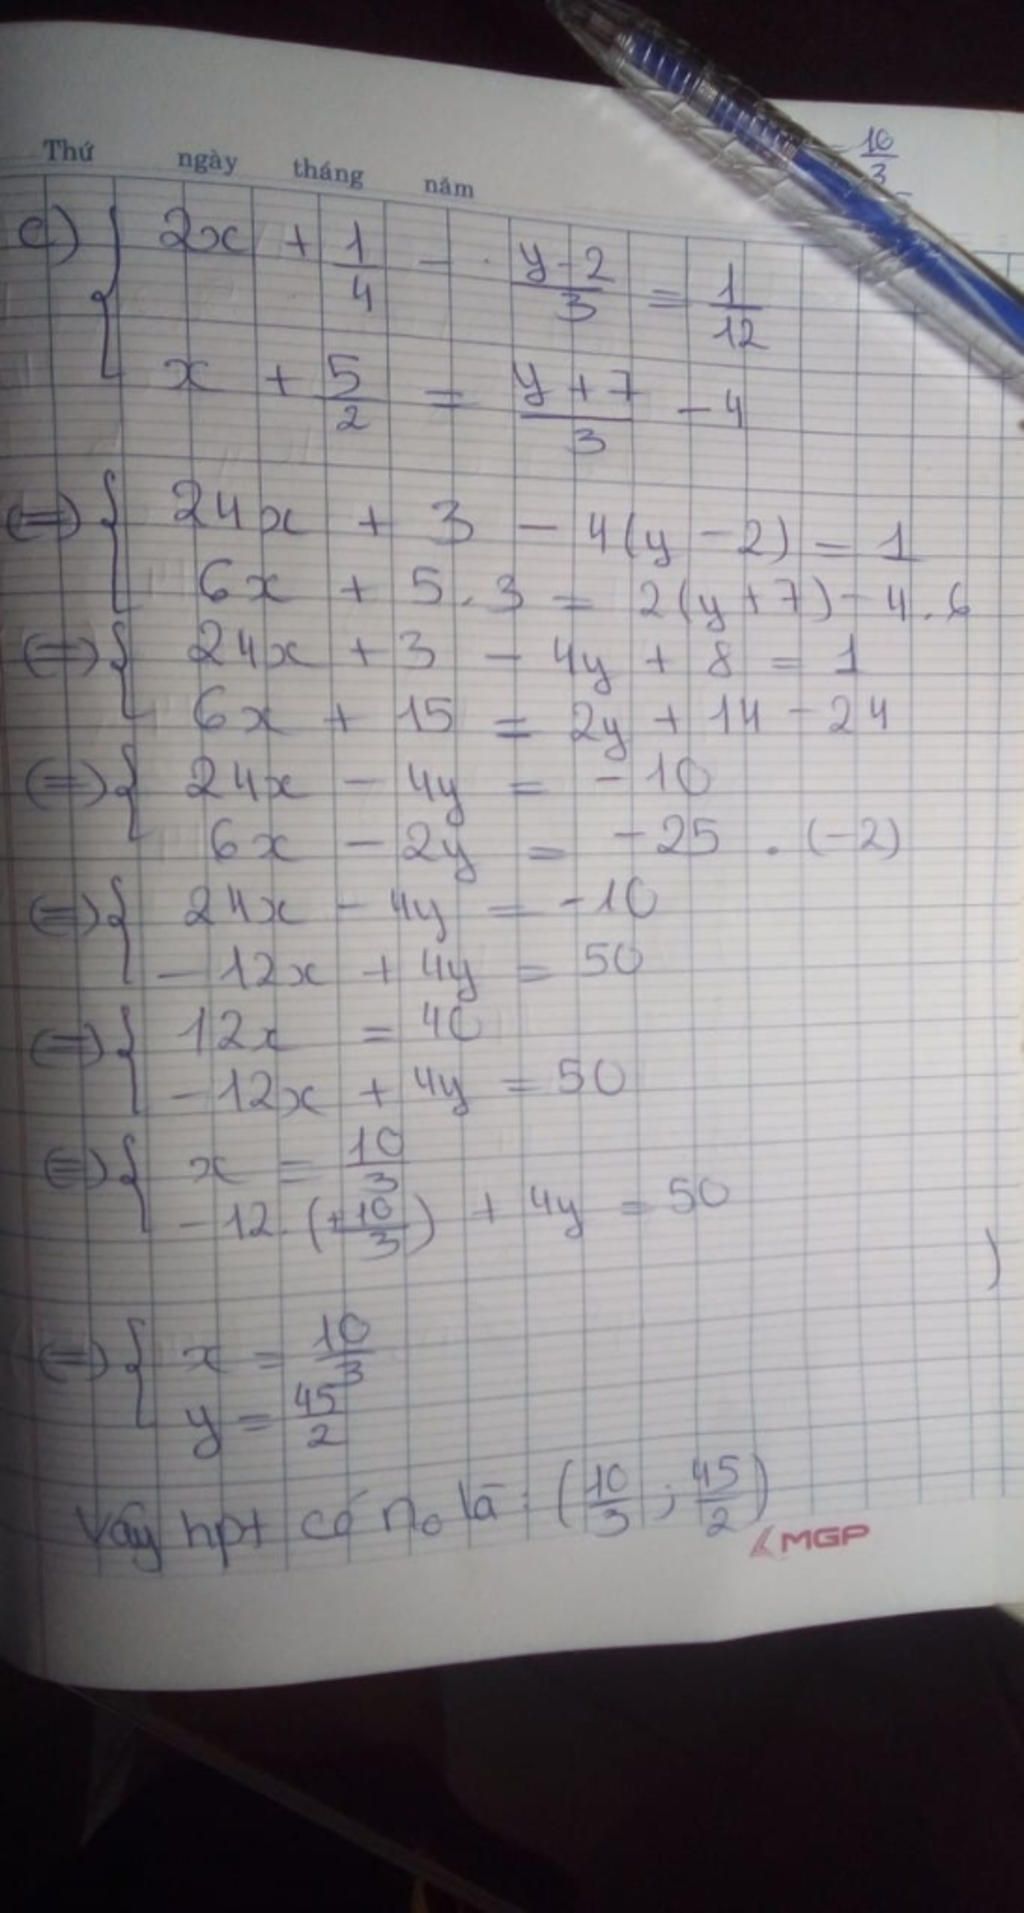 Thứ ngày tháng năm
10/3
c) { 2x + 1/4 - (y-2)/3 = 1/12
x + 5/2 = (y+7)/3 - 4
<=> { 24x + 3 - 4(y-2) = 1
6x + 5.3 = 2(y+7) - 4.6
<=> { 24x + 3 - 4y + 8 = 1
6x + 15 = 2y + 14 - 24
<=> { 24x - 4y = -10
6x - 2y = -25 . (-2)
<=> { 24x - 4y = -10
-12x + 4y = 50
<=> { 12x = 40
-12x + 4y = 50
<=> { x = 10/3
-12.(+10/3) + 4y = 50
)
<=> { x = 10/3
y = 45/2
Vậy hpt có n₀ là : (10/3 ; 45/2)
MGP